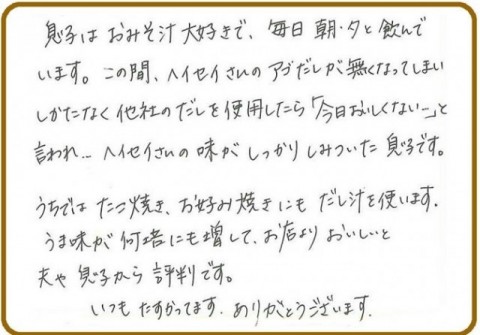 息子は おみそ汁 大好きで、毎日 朝・夕と飲んで
います。この間、ヘイセイさんの アゴだしが 無くなってしまい
しかたなく 他社のだしを使用したら「今日おいしくない…」と
言われ… ヘイセイさんの 味が しっかり しみついた 息子です。
うちでは たこ焼き、お好み焼きにも だし汁を使います。
うま味が 何倍にも増して、お店より おいしいと
夫や 息子から 評判です。
いつも たすかってます。ありがとうございます。